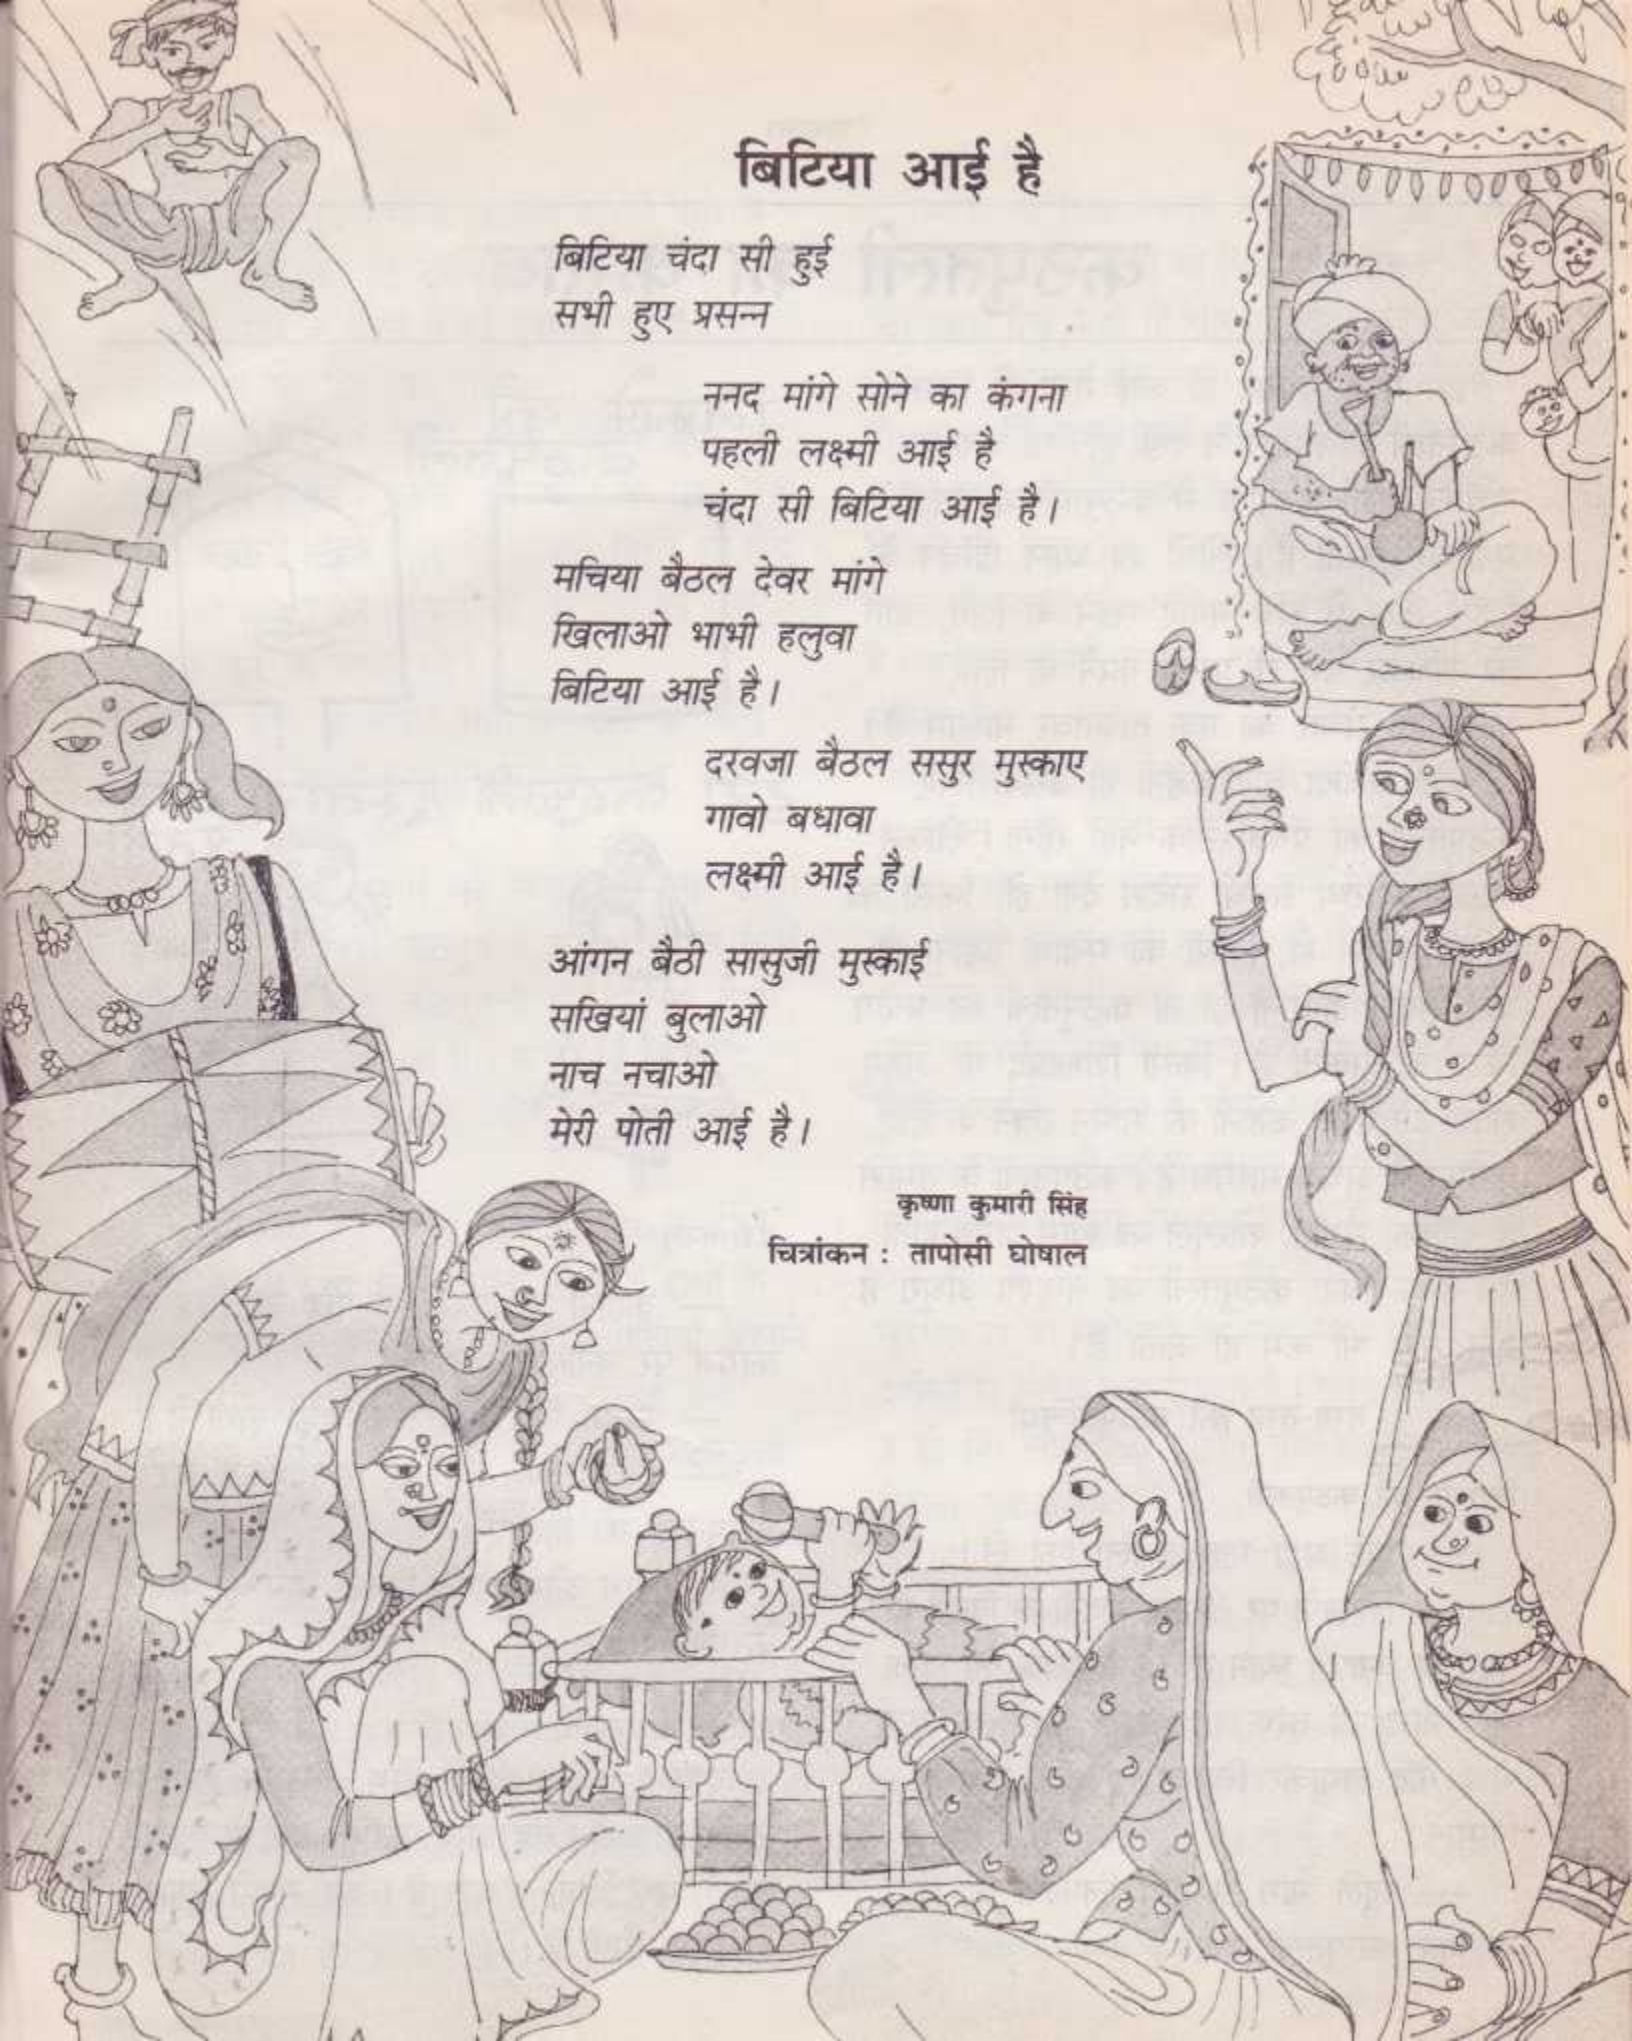 बिटिया आई है
बिटिया चंदा सी हुई
सभी हुए प्रसन्न
ननद मांगे सोने का कंगना
पहली लक्ष्मी आई है
चंदा सी बिटिया आई है।
मचिया बैठल देवर मांगे
खिलाओ भाभी हलुवा
बिटिया आई है।
दरवजा बैठल ससुर मुस्काए
गावो बधावा
लक्ष्मी आई है।
आंगन बैठी सासुजी मुस्काई
सखियां बुलाओ
नाच नचाओ
मेरी पोती आई है।
कृष्णा कुमारी सिंह
चित्रांकन : तापोसी घोषाल